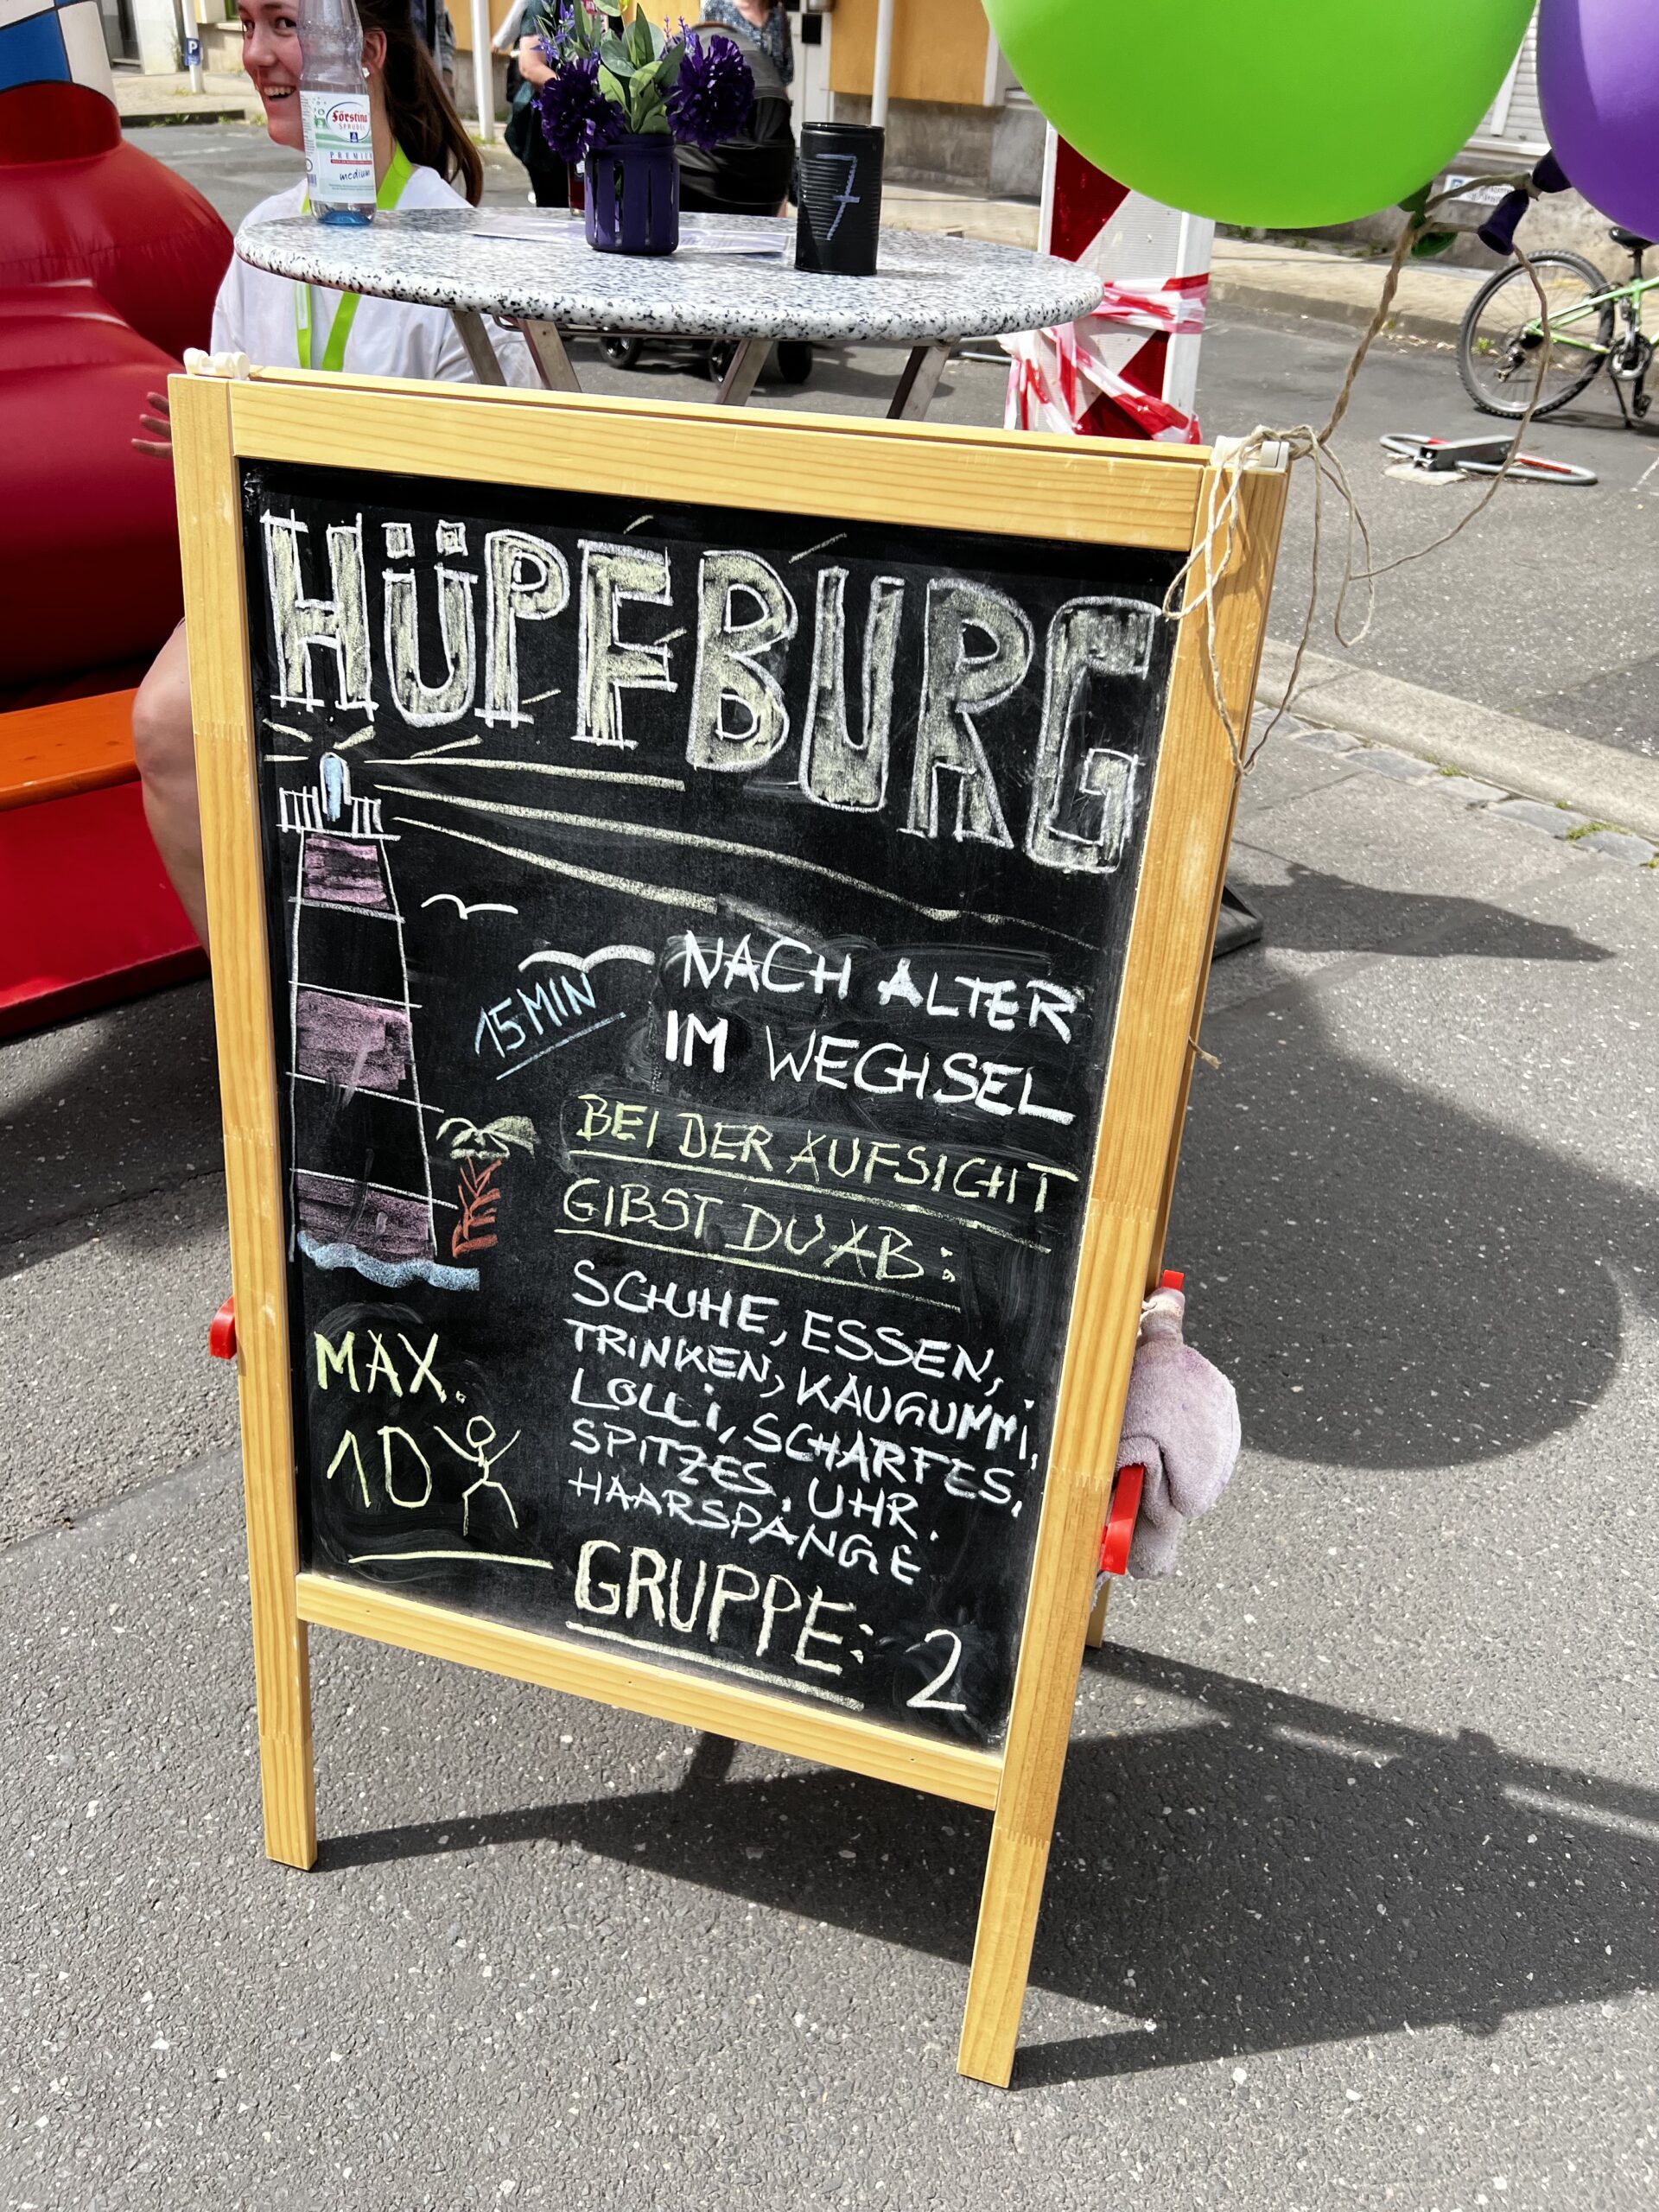 P
Förstina
SPRUDEL
PREMIUM
medium
7
HÜPFBURG
NACH ALTER
15 MIN
IM WECHSEL
BEI DER AUFSICHT
GIBST DU AB:
SCHUHE, ESSEN,
TRINKEN, KAUGUMMI,
LOLLI, SCHARFES,
SPITZES, UHR.
HAARSPANGE
MAX.
10
GRUPPE: 2